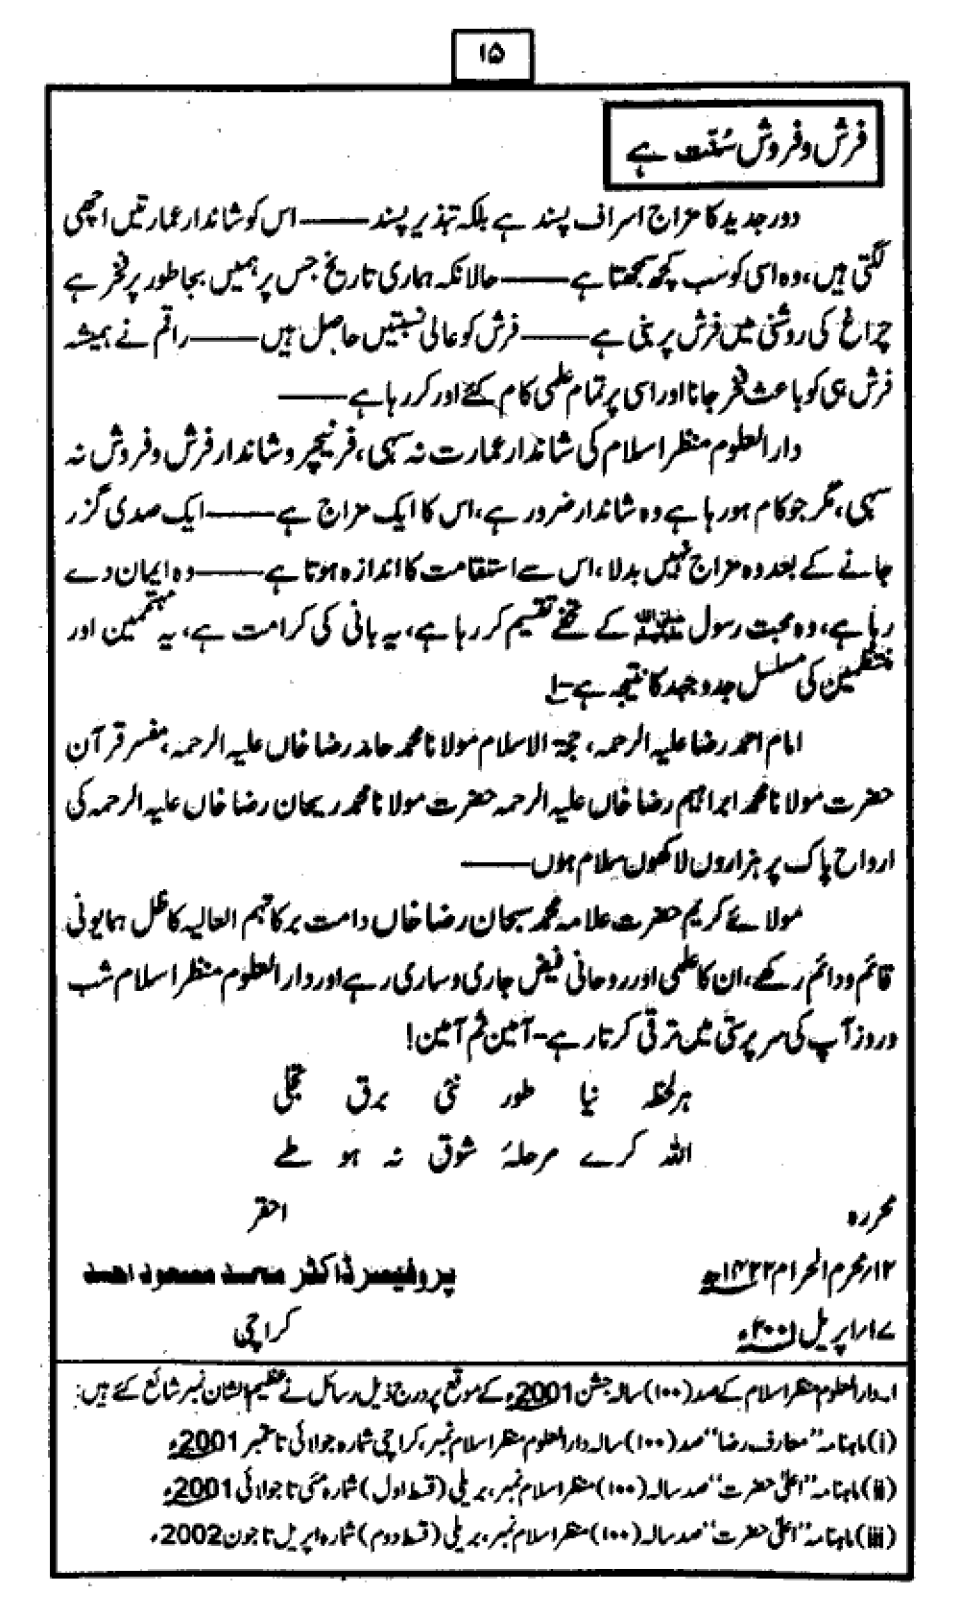 ۱۵
فرش و فروش سُنّت ہے
دور جدید کا مزاج اسراف پسند ہے بلکہ تبذیر پسند——اس کو شاندار عمارتیں اچھی
لگتی ہیں، وہ اسی کو سب کچھ سمجھتا ہے——حالانکہ ہماری تاریخ جس پر ہمیں بجا طور پر فخر ہے
چراغ کی روشنی میں فرش پر بنی ہے——فرش کو عالی نسبتیں حاصل ہیں——راقم نے ہمیشہ
فرش ہی کو باعث فخر جانا اور اسی پر تمام علمی کام کئے اور کر رہا ہے——
دارالعلوم منظر اسلام کی شاندار عمارت نہ سہی، فرنیچر و شاندار فرش و فروش نہ
سہی، مگر جو کام ہو رہا ہے وہ شاندار ضرور ہے، اس کا ایک مزاج ہے——ایک صدی گزر
جانے کے بعد وہ مزاج نہیں بدلا، اس سے استقامت کا اندازہ ہوتا ہے——وہ ایمان دے
رہا ہے، وہ محبت رسول ﷺ کے تحفے تقسیم کر رہا ہے، یہ بانی کی کرامت ہے، یہ مہتممین اور
منتظمین کی مسلسل جدوجہد کا نتیجہ ہے-۱
امام احمد رضا علیہ الرحمہ، حجۃ الاسلام مولانا محمد حامد رضا خاں علیہ الرحمہ، مفسر قرآن
حضرت مولانا محمد ابراہیم رضا خاں علیہ الرحمہ حضرت مولانا محمد ریحان رضا خاں علیہ الرحمہ کی
ارواح پاک پر ہزاروں لاکھوں سلام ہوں——
مولائے کریم حضرت علامہ محمد سبحان رضا خاں دامت برکاتہم العالیہ کا ظل ہمایونی
قائم و دائم رکھے، ان کا علمی اور روحانی فیض جاری و ساری رہے اور دارالعلوم منظر اسلام شب
و روز آپ کی سرپرستی میں ترقی کرتا رہے-آمین ثم آمین!
ہر لحظہ نیا طور نئی برق تجلی
اللہ کرے مرحلۂ شوق نہ ہو طے
محررہ
احقر
۱۲؍محرم الحرام ۱۴۲۲ھ
پروفیسر ڈاکٹر محمد مسعود احمد
۱۷؍اپریل ۲۰۰۱ء
کراچی
۱۔دارالعلوم منظر اسلام کے صد (۱۰۰) سالہ جشن 2001ء کے موقع پر درج ذیل رسائل نے عظیم الشان نمبر شائع کئے ہیں:
(i) ماہنامہ "معارف رضا" صد (۱۰۰) سالہ دارالعلوم منظر اسلام نمبر، کراچی شمارہ جولائی تا ستمبر 2001ء
(ii) ماہنامہ "اعلیٰ حضرت" صد سالہ (۱۰۰) منظر اسلام نمبر، بریلی (قسط اول) شمارہ مئی تا جولائی 2001ء
(iii) ماہنامہ "اعلیٰ حضرت" صد سالہ (۱۰۰) منظر اسلام نمبر، بریلی (قسط دوم) شمارہ اپریل تا جون 2002ء